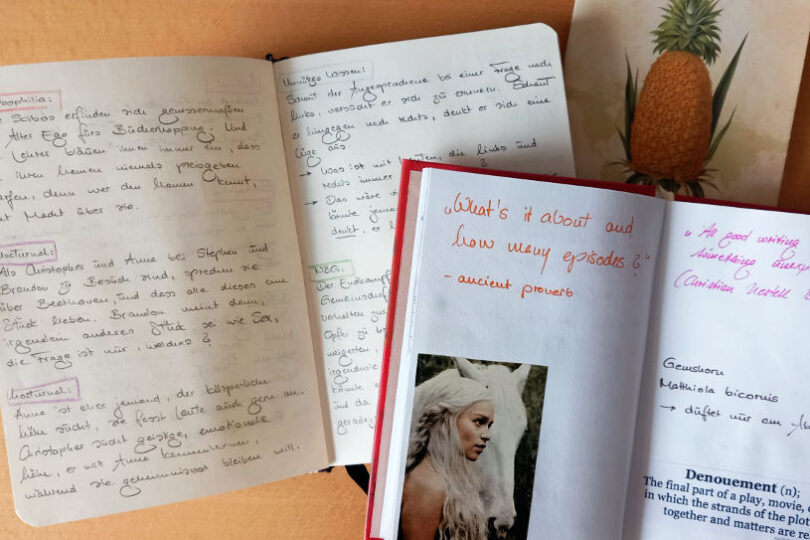 Scibos erfinden sich gewissermaßen
Alter Ego fürs Bücherhopping. Und
Lehrer bläuen ihnen immer ein, dass
ihren Namen niemals preisgeben
denn wer den Namen kennt,
Macht über sie.
Nocturnal:
Als Christopher und Anna bei Stephen und
Brandon zu Besuch sind, sprechen sie
über Beethoven und dass alle dieses eine
Stück lieben. Brandon meint dann,
irgendein anderes Stück sei wie Sex,
die Frage ist nur, welches?
Nocturnal:
Anna ist eher jemand, der körperliche
Nähe sucht, sie fasst Leute auch gern an.
Christopher sucht geistige, emotionale
Nähe, er will Anna kennenlernen,
während sie geheimnisvoll bleiben will.
Unnützes Wissen:
Schaut der Angesprochene bei einer Frage nach
links, versucht er sich zu erinnern. Schaut
er hingegen nach rechts, denkt er sich eine
Lüge aus.
→ Was ist mit Leuten, die links und
rechts immer
→ Das wäre
könnte jemand
denkt, er
Der Endkampf
Gemeinschaft
verhalten
Opfer zu
weigerten,
irgendwie
könnte
und da
gerade
„What's it about and
how many episodes?"
- ancient proverb
„As good writing
something
(Christian
Gemshorn
Matthiola bicornis
→ duftet nur am
Denouement (n);
The final part of a play, movie,
in which the strands of the plot
together and matters are